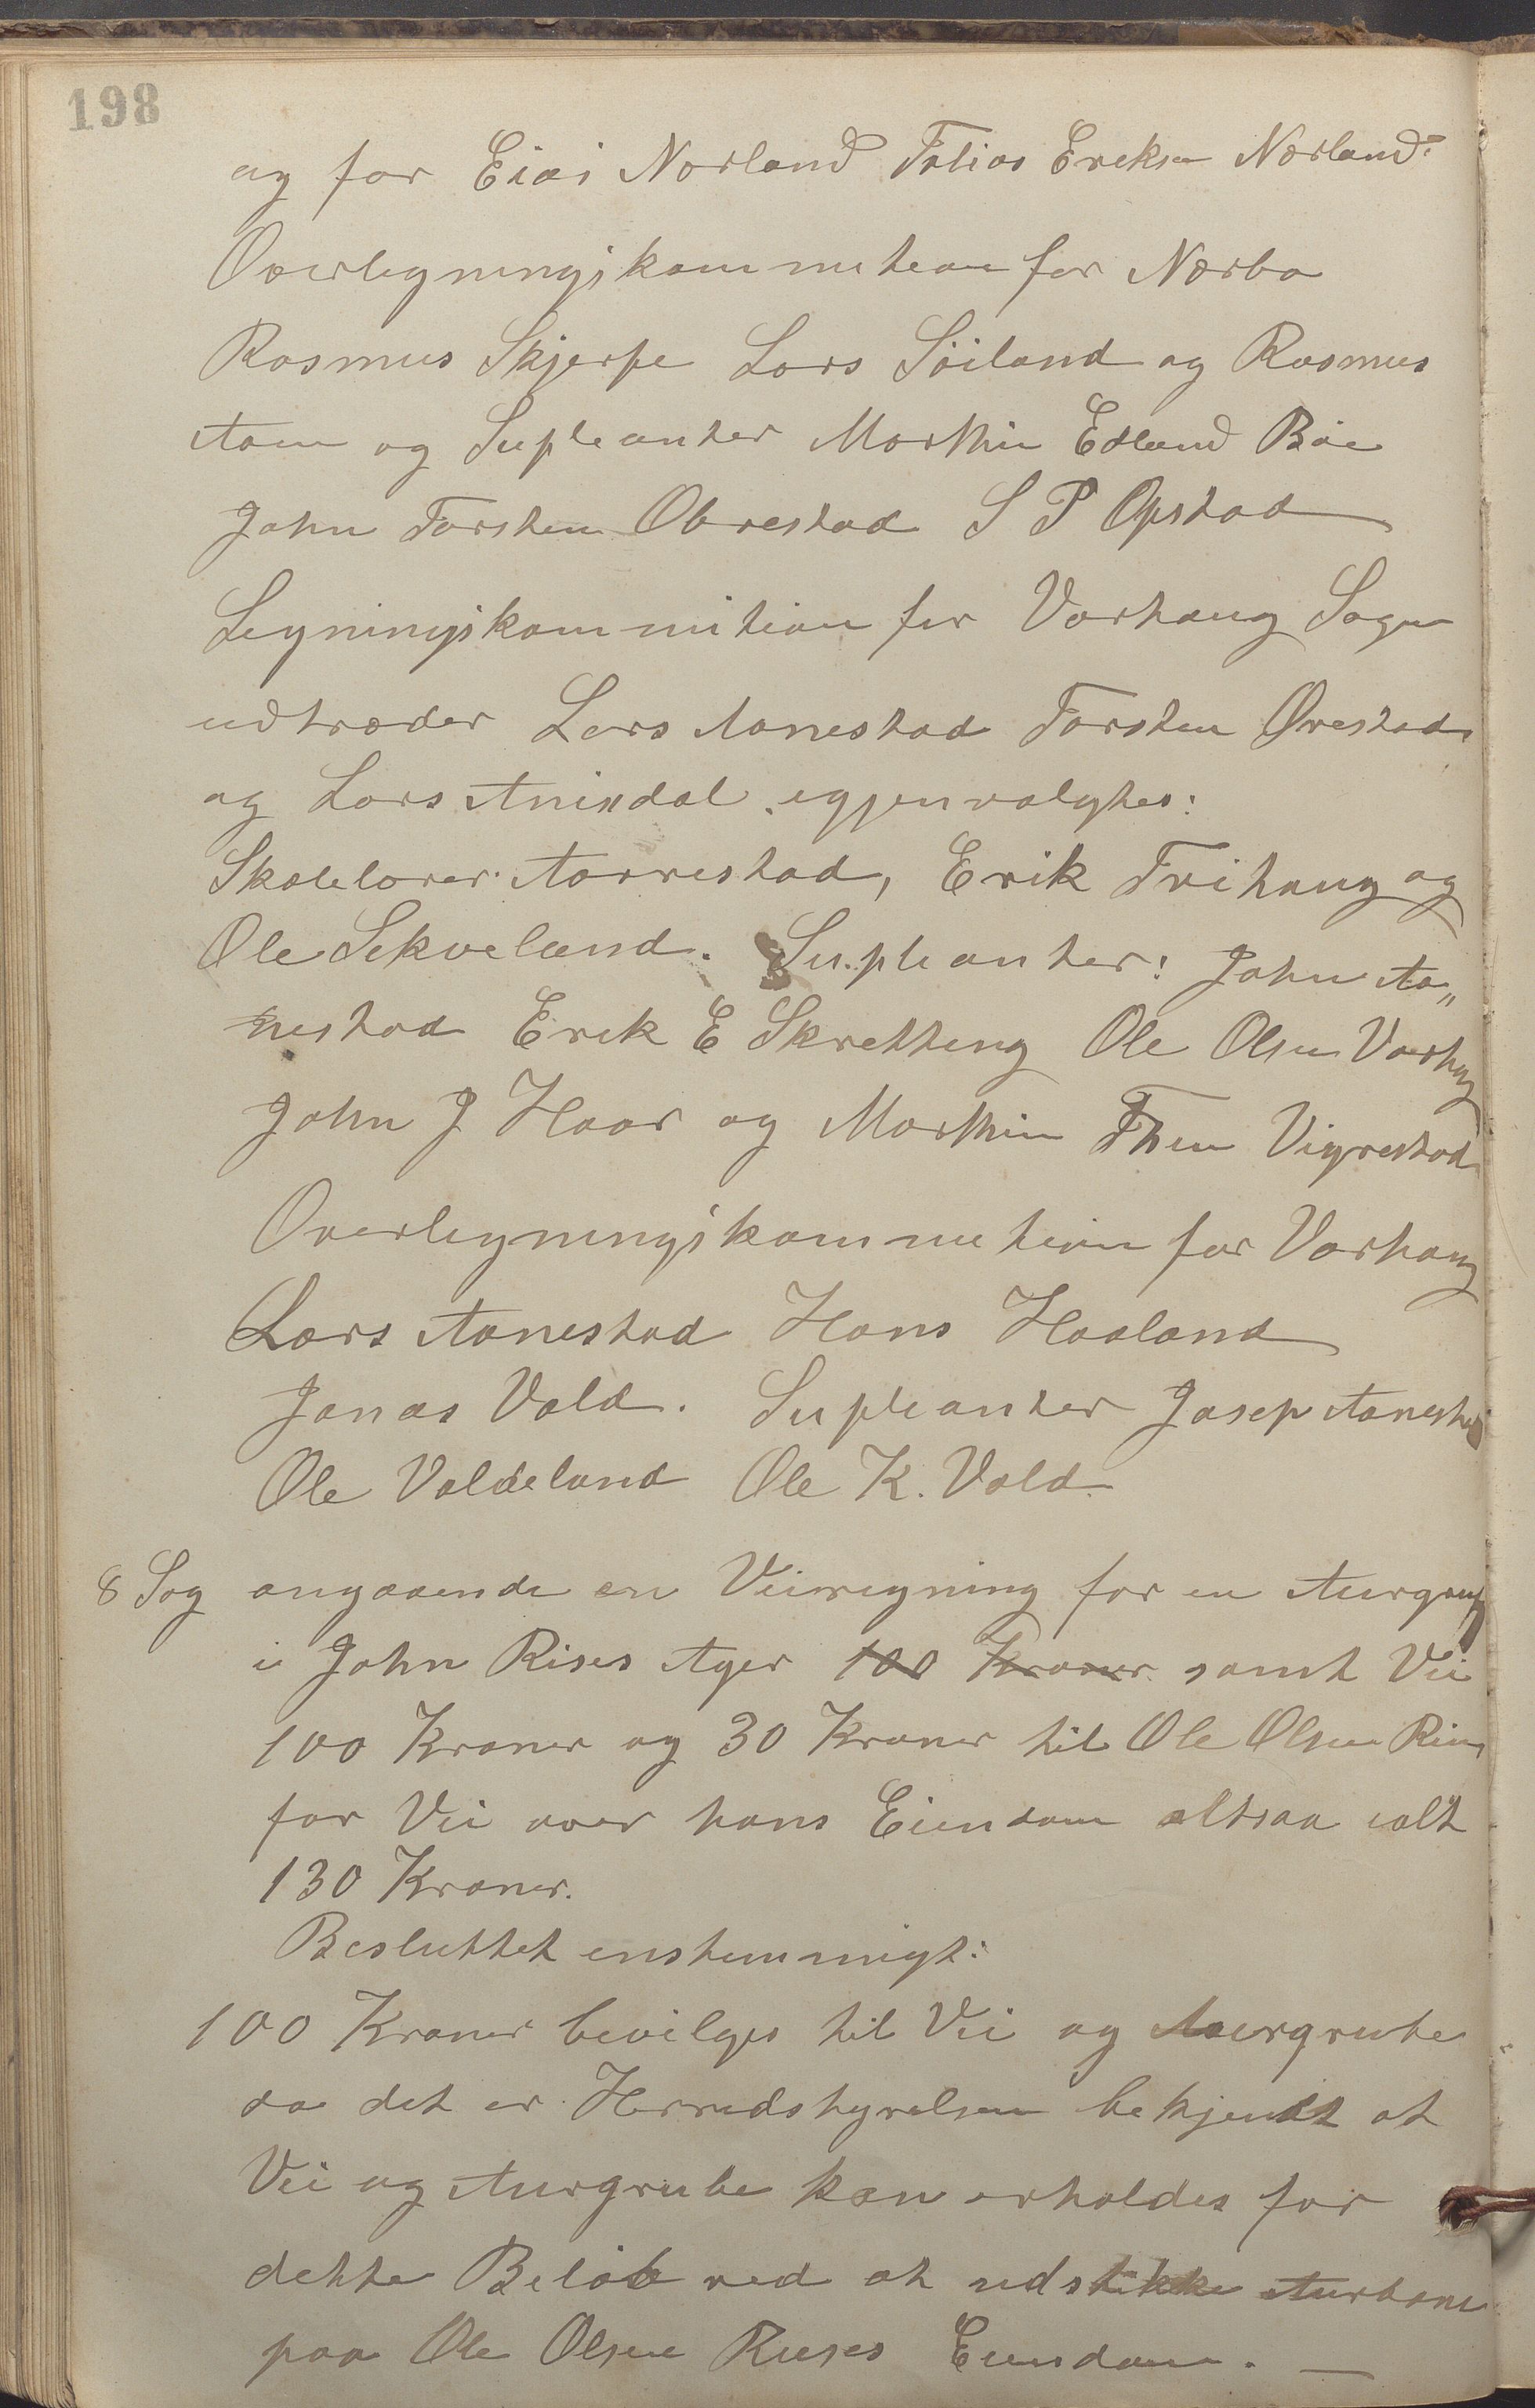 198
og for Eiai Norland Tolias Ereksen Nærland.
Overligningskommitionen for Nærbø
Rasmus Skjerpe Lars Söiland og Rasmus
Aam og Supleanter Marthin Edland Böe
John Torsten Obrestad S P Opstad
Ligningskommitionen for Varhaug Sogn
udtræder Lars Aanestad Torsten Ørestad
og Lars Anisdal igjenvalgtes:
Skolelærer Aarrestad, Erik Trihaug og
Ole Sekveland. Supleanter: John Aa„
nestad Erik E Skretting Ole Olsen Varhaug
John J Haar og Marthin Vigrestad
Overligningskommitionen for Varhaug
Lars Aanestad Hans Haaland
Jonas Vold. Supleanter Josep Aanestad
Ole Voldeland Ole K. Vold
8 Sag angaaende en Veiregning for en Aurgrube
i John Rises Ager 100 Kroner samt Vei
100 Kroner og 30 Kroner til Ole Olsen Riis
for Vei over hans Eiendom altsaa ialt
130 Kroner.
Besluttet enstemmigt:
100 Kroner bevilges til Vei og Aurgrube
da det er Herredstyrelsen bekjendt at
Vei og Aurgrube kan erholdes for
dette Beløb ved at udstikke
paa Ole Olsen Rises Eiendom. —